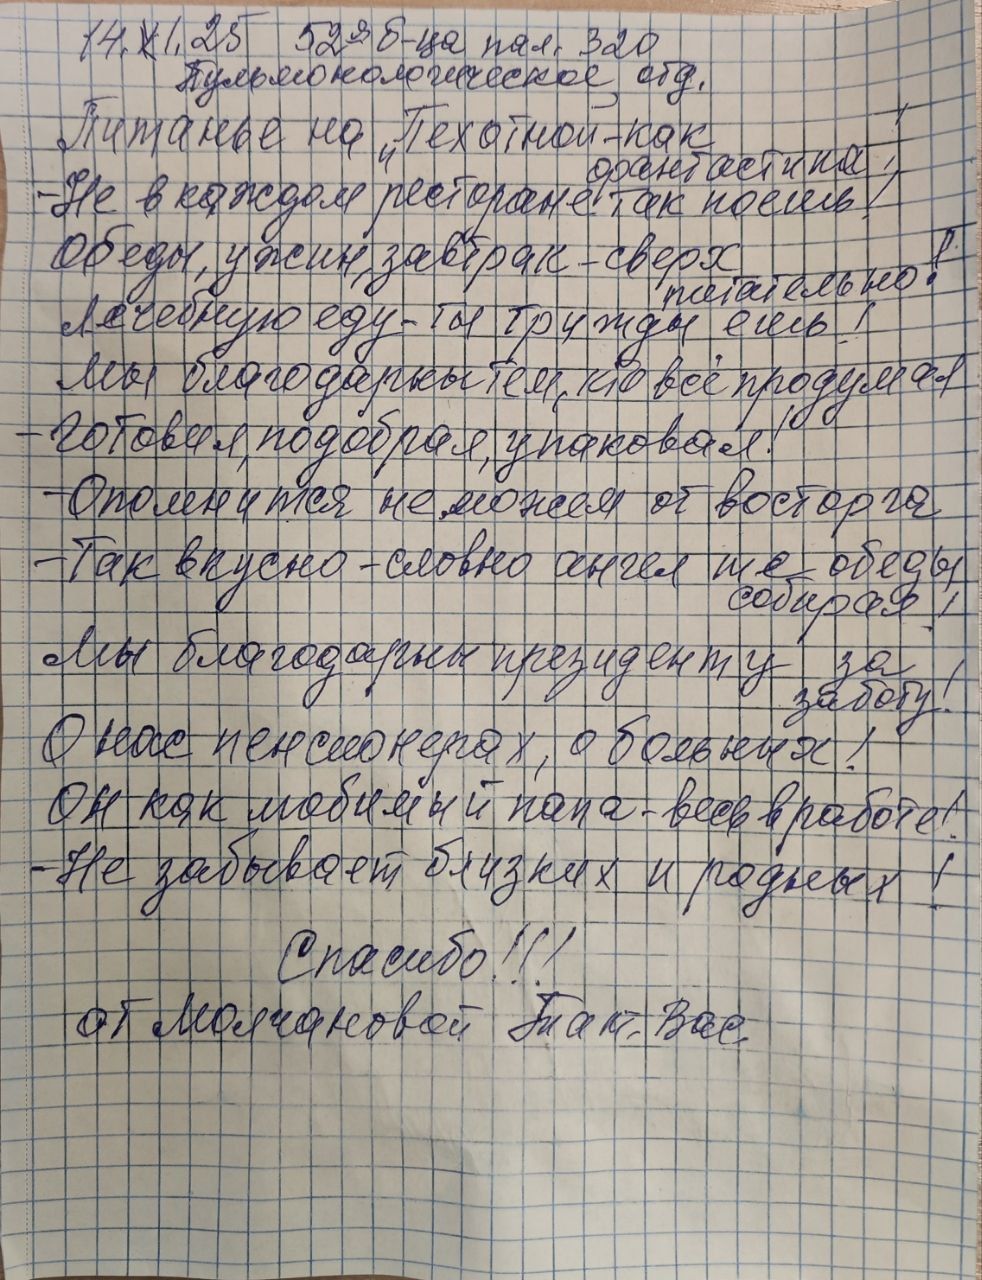 14.XI.25 52я б-ца пал. 320
Пульмонологическое отд.
Питанье на „Пехотной-как
фантастика!
-Не в каждом ресторане так поешь!
Обеды, ужин, завтрак-сверх
питательно!
Лечебную еду-ты трижды ешь!
Мы благодарны тем, кто всё продумал
-Готовил, подобрал, упаковал!
-Опомнится не можем от восторга
-Так вкусно-словно ангел те обеды
собирал!
Мы благодарны президенту за
заботу!
О нас пенсионерах, о больных!
Он как любимый папа-весь в работе!
-Не забывает близких и родных!
Спасибо!!!
от Молчановой Тат. Вас.